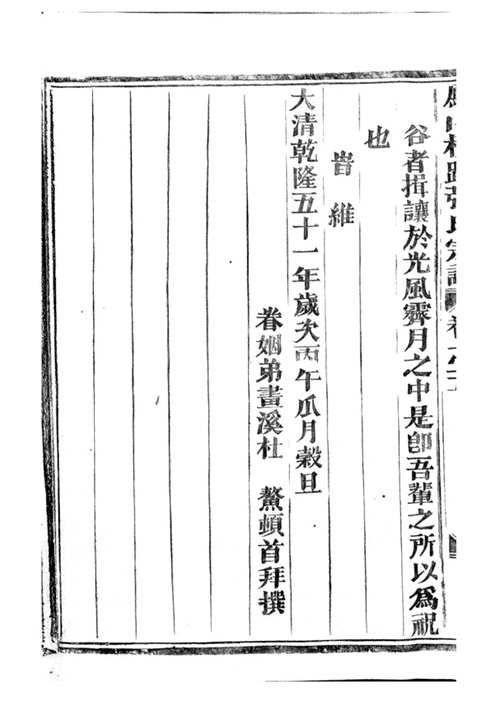 張氏宗譜 卷
谷者揖讓於光風霽月之中是卽吾輩之所以為祝
也
旹維
大清乾隆五十一年歲次丙午瓜月穀旦
眷姻弟畫溪杜 鰲頓首拜撰